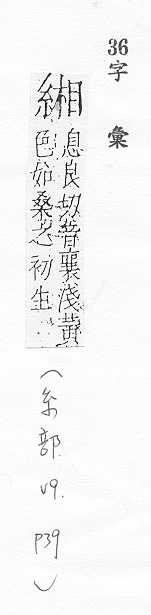 36字彙
緗
息良切音襄淺黃
色如桑初生
(糸部 V9. P39)